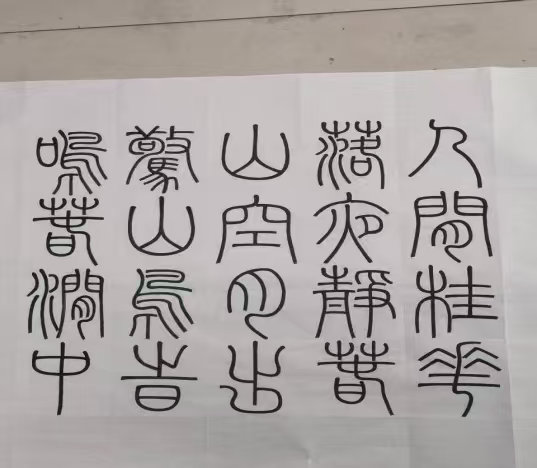 人閒桂華
落夜靜春
山空月出
驚山鳥旹
鳴春澗中